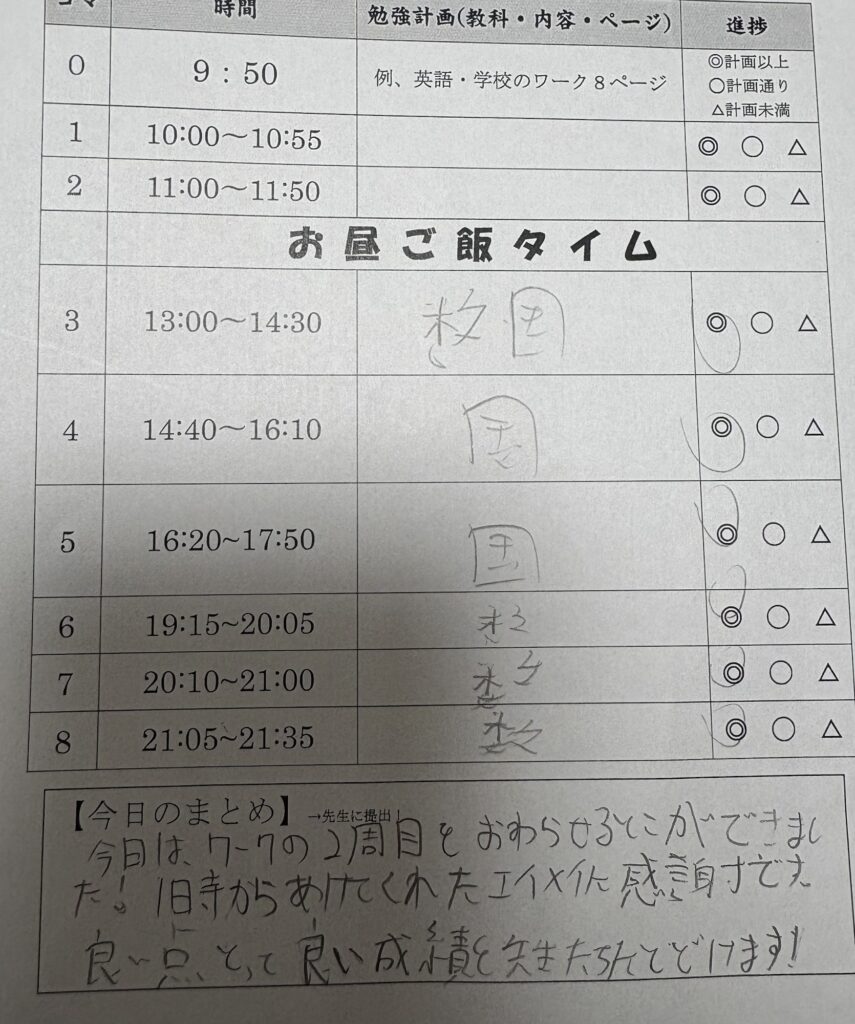 コマ 時間 勉強計画(教科・内容・ページ) 進捗
0 9：50 例、英語・学校のワーク８ページ ◎計画以上
○計画通り
△計画未満
1 10:00～10:55 ◎ ○ △
2 11:00～11:50 ◎ ○ △
お昼ご飯タイム
3 13:00～14:30 数 国 ◎ ○ △
4 14:40～16:10 国 ◎ ○ △
5 16:20~17:50 国 ◎ ○ △
6 19:15~20:05 数 ◎ ○ △
7 20:10~21:00 数 ◎ ○ △
8 21:05~21:35 数 ◎ ○ △
【今日のまとめ】→先生に提出！
今日は、ワークの2周目をおわらせるとこができまし
た！ 10時からあけてくれたエイメイに感謝です。
良い点とって良い成績を先生たちにとどけます！